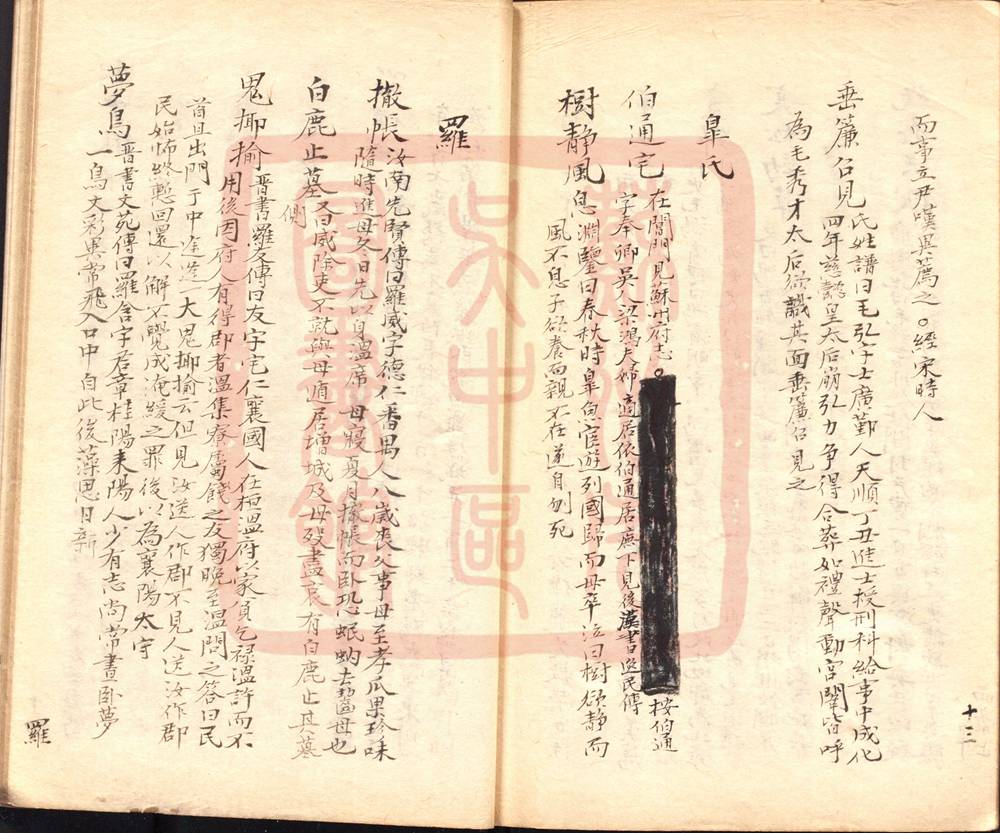 而事立尹嘆異薦之○經宋時人
垂簾召見氏姓譜曰毛弘字士廣鄞人天順丁丑進士授刑科給事中成化
四年慈懿皇太后崩弘力争得合葬如禮聲動宮闈皆呼
為毛秀才太后欲識其面垂簾召見之
皐氏
伯通宅在閶門見蘇州府志○按伯通
字奉卿吳人梁鴻夫婦適居依伯通居廡下見後漢書逸民傳
樹静風息淵鑒曰春秋時皐魚宦遊列國歸而母卒泣曰樹欲静而
風不息子欲養而親不在遂自刎死
羅
撤帳汝南先賢傳曰羅威字德仁番禺人八歲喪父事母至孝瓜果珍味
隨時進母冬日先以身溫席母寢夏月撤帳而卧恐蚊蚋去齧母也
白鹿止墓又曰威除吏不就與母遁居增城及母歿盡哀有白鹿止其墓
側
鬼揶揄晋書羅友傳曰友字宅仁襄國人在桓溫府以家貧乞祿溫許而不
用後因府人有得郡者溫集寮屬餞之友獨晚至溫問之答曰民
首旦出門于中途逢大鬼揶揄云但見汝送人作郡不見人送汝作郡
民始怖終慙回還以解不覺成淹緩之罪後以為襄陽太守
夢鳥晋書文苑傳曰羅含字君章桂陽耒陽人少有志尚常晝卧夢
一鳥文彩異常飛入口中自此後藻思日新
十三
羅
吳中區
圖書館